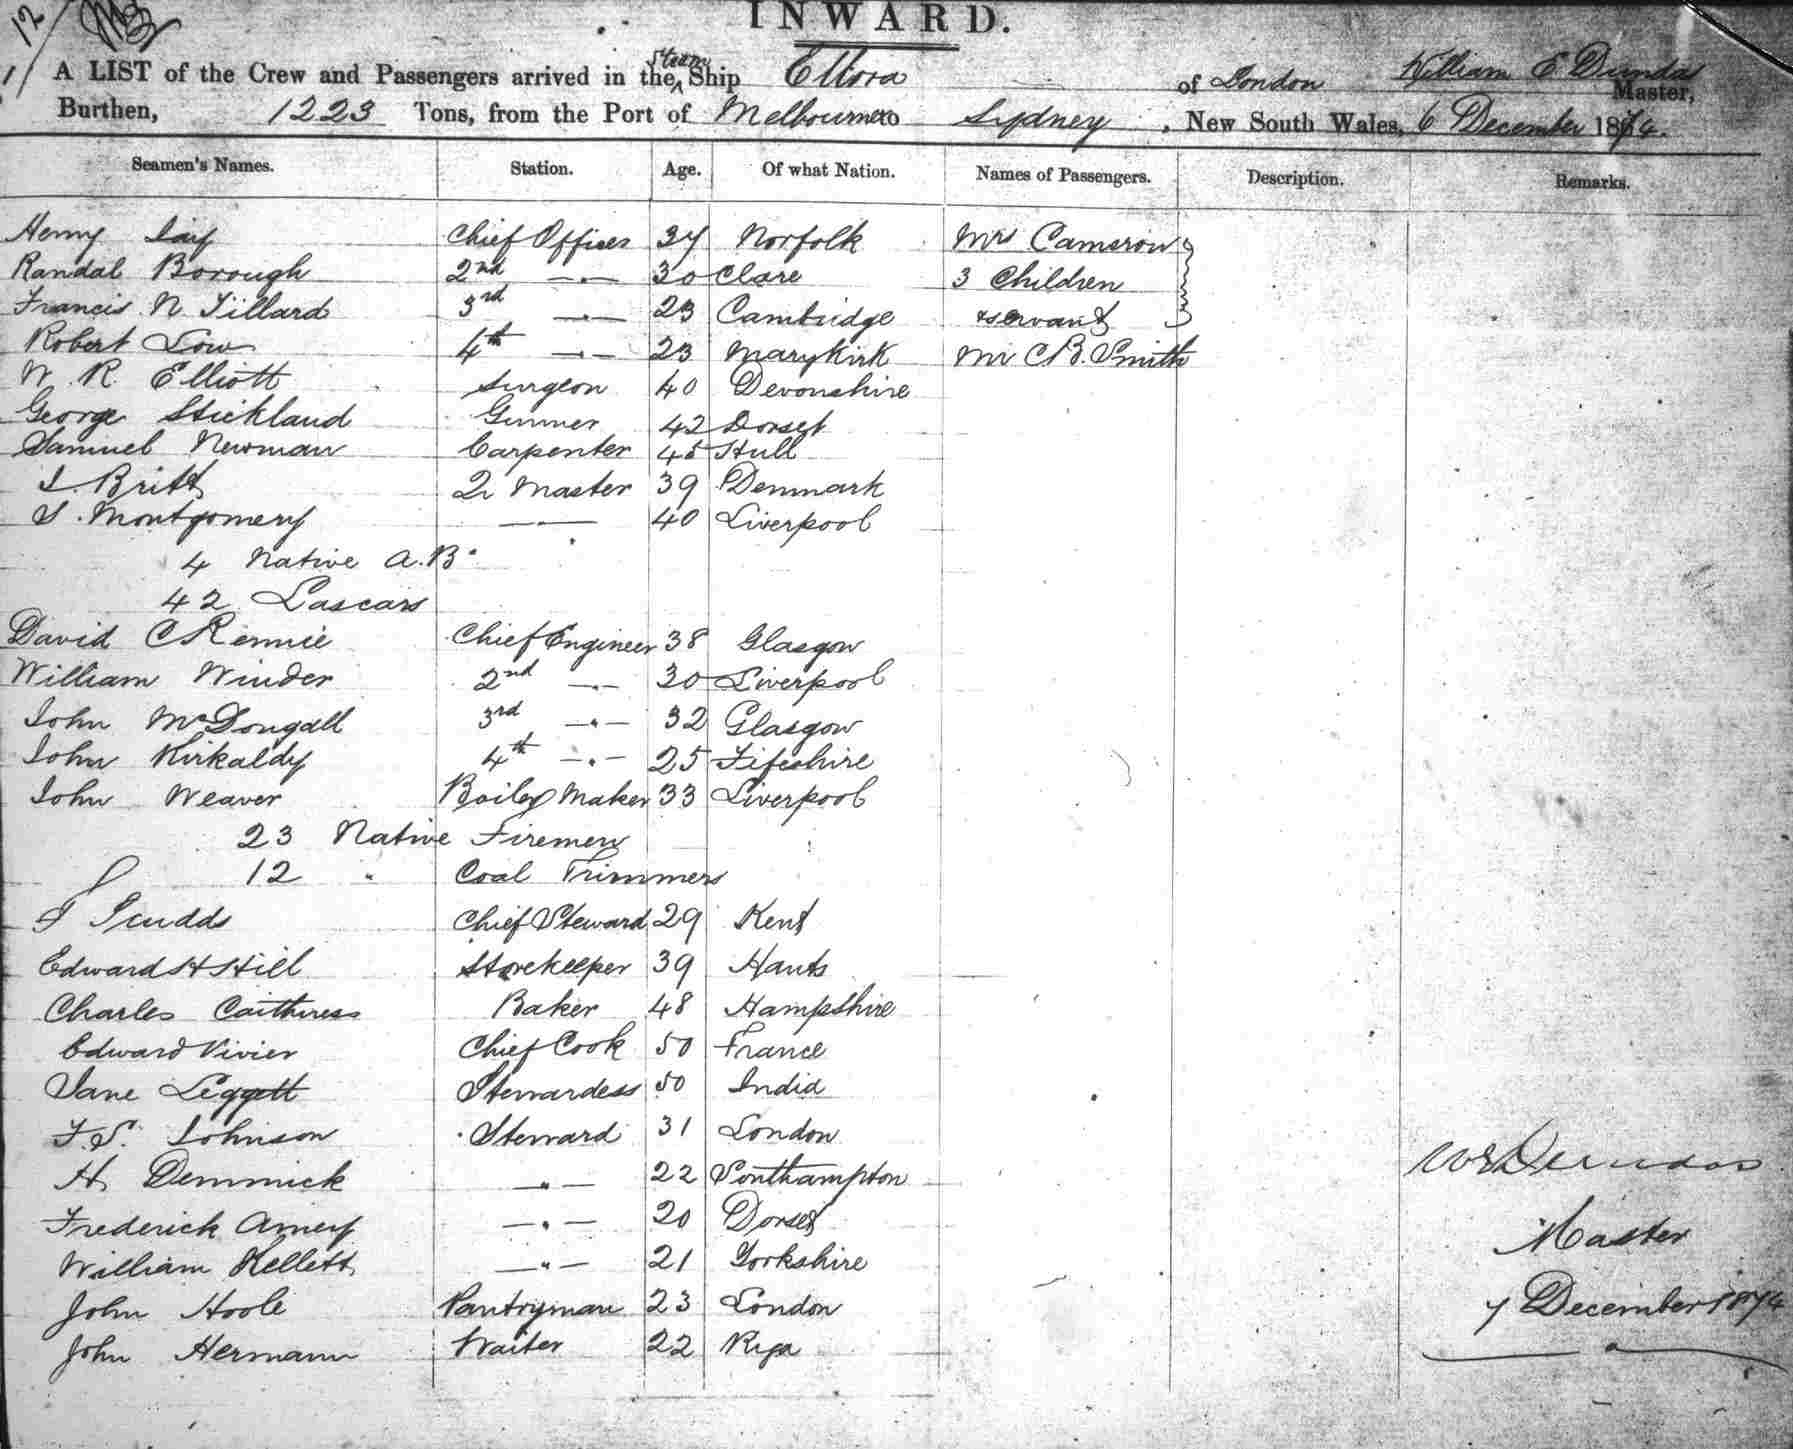 INWARD.
A LIST of the Crew and Passengers arrived in the Steam Ship Ellora of London William E Dundas Master,
Burthen, 1223 Tons, from the Port of Melbourne to Sydney, New South Wales, 6 December 1874.
Seamen's Names. Station. Age. Of what Nation. Names of Passengers. Description. Remarks.
Henry Chief Officer 34 Norfolk Mrs Cameron
Randal Borough 2nd —"— 30 Clare 3 Children
Francis N. Tillard 3rd —"— 23 Cambridge & servant
Robert Low 4th —"— 23 Marykirk Mr C B. Smith
W. R. Elliott Surgeon 40 Devonshire
George Stickland Gunner 42 Dorset
Samuel Newman Carpenter 45 Hull
Britt Q Master 39 Denmark
Montgomery —"— 40 Liverpool
4 Native A.B
42 Lascars
David C Rennie Chief Engineer 38 Glasgow
William Winder 2nd —"— 30 Liverpool
John McDougall 3rd —"— 32 Glasgow
John Kirkaldy 4th —"— 25 Fifeshire
John Weaver Boiler Maker 33 Liverpool
23 Native Firemen
12 " Coal Trimmers
Scudds Chief Steward 29 Kent
Edward H Hill Storekeeper 39 Hants
Charles Caithness Baker 48 Hampshire
Edward Vivier Chief Cook 50 France
Jane Leggett Stewardess 50 India
F. S. Johnson Steward 31 London
H. Demmick —"— 22 Southampton
Frederick Amey —"— 20 Dorset
William Kellett —"— 21 Yorkshire
John Hoole Pantryman 23 London
John Hermann Waiter 22 Riga
W E Dundas
Master
7 December 1874